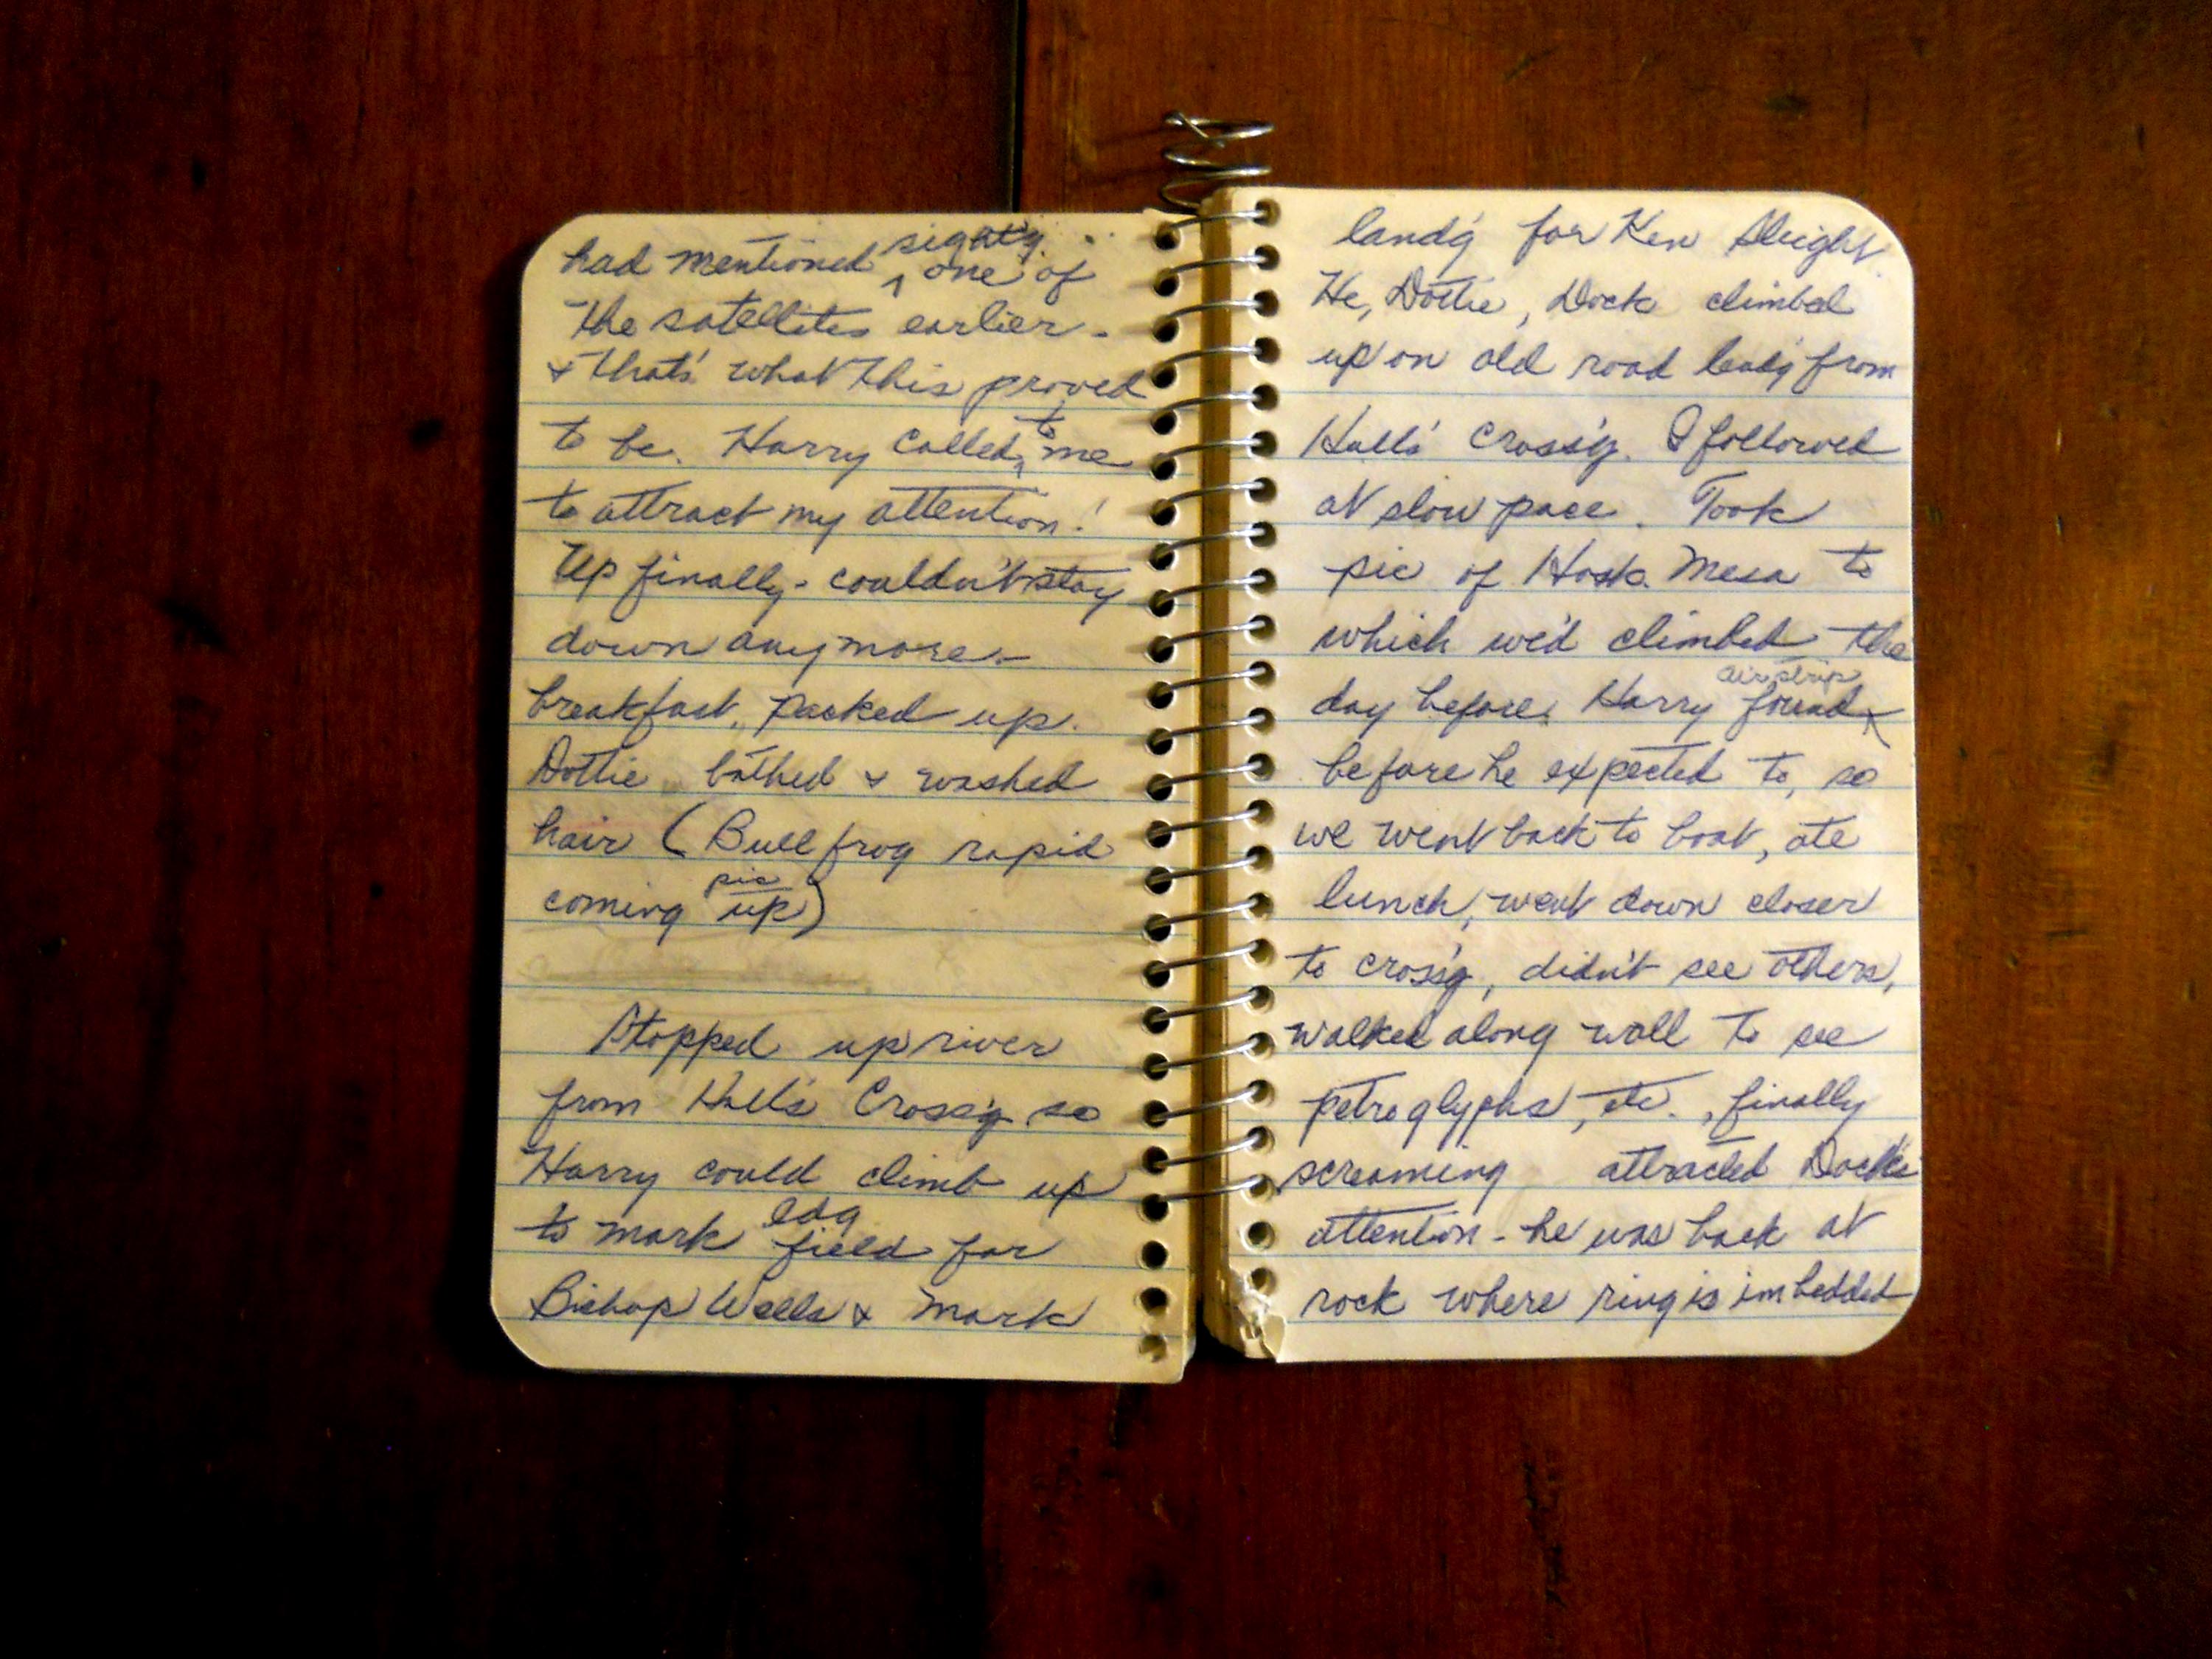 had mentioned sight'g one of
the satellites earlier -
& that's what this proved
to be. Harry called to me
to attract my attention!
Up finally - couldn't stay
down anymore -
breakfast, packed up.
Dottie bathed & washed
hair (Bullfrog rapid
coming up pic)
Stopped up river
from Hall's Cross'g so
Harry could climb up
to mark ldg field for
Bishop Wells & mark
land'g for Ken Sleight.
He, Dottie, Dock climbed
up on old road lead'g from
Hall's Cross'g. I followed
at slow pace. Took
pic of Hosk. Mesa to
which we'd climbed the
day before. Harry found air strip
before he expected to, so
we went back to boat, ate
lunch, went down closer
to cross'g, didn't see others,
walked along wall to see
petroglyphs, etc., finally
screaming attracted Dock's
attention - he was back at
rock where ring is imbedded